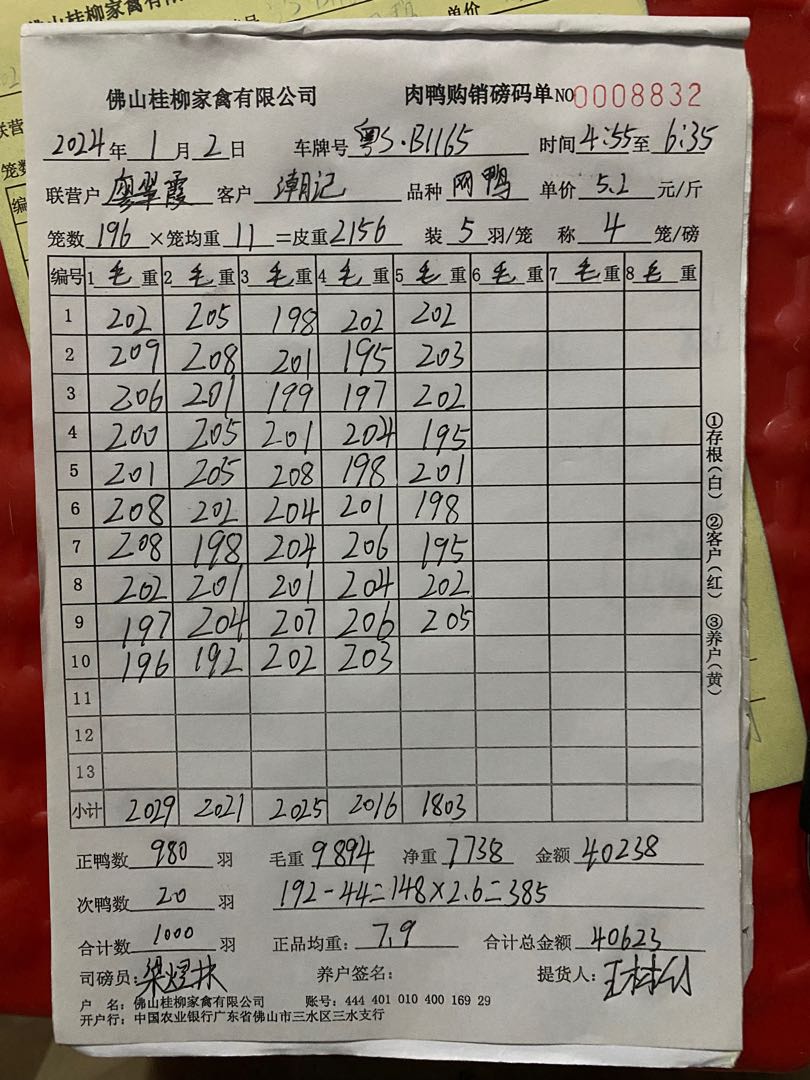 佛山桂柳家禽有限公司 肉鸭购销磅码单 NO 0008832
2024年 1月 2日 车牌号 粤S·B1165 时间 4:55 至 6:35
联营户 廖翠霞 客户 潮记 品种 网鸭 单价 5.2 元/斤
笼数 196 ×笼均重 11 =皮重 2156 装 5 羽/笼 称 4 笼/磅
编号 1 毛 重 2 毛 重 3 毛 重 4 毛 重 5 毛 重 6 毛 重 7 毛 重 8 毛 重
1 202 205 198 202 202
2 209 208 201 195 203
3 206 201 199 197 202
4 200 205 201 204 195
5 201 205 208 198 201
6 208 202 204 201 198
7 208 198 204 206 195
8 202 201 201 204 202
9 197 204 207 206 205
10 196 192 202 203
11
12
13
小计 2029 2021 2025 2016 1803
正鸭数 980 羽 毛重 9894 净重 7738 金额 40238
次鸭数 20 羽 192-44=148×2.6=385
合计数 1000 羽 正品均重: 7.9 合计总金额 40623
司磅员: 梁焜林 养户签名: 提货人:
户 名: 佛山桂柳家禽有限公司 账号: 444 401 010 400 169 29
开户行: 中国农业银行广东省佛山市三水区三水支行
①存根(白) ②客户(红) ③养户(黄)